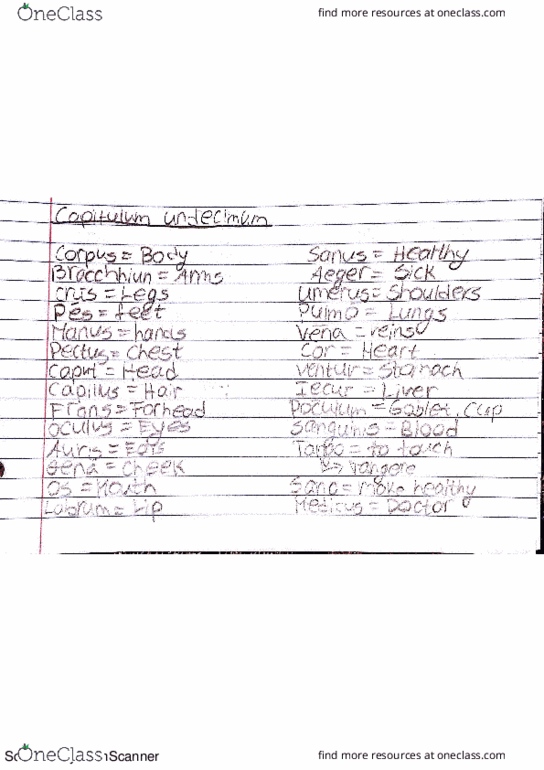 OneClass
find more resources at oneclass.com
Capitulum undecimum
Corpus = Body
Bracchhiun = Arms
Cruis = Legs
Pēs = feet
Manus = hands
Pectus = chest
Caput = Head
Capillus = Hair
Frons = Forhead
Oculus = Eyes
Auris = Ears
Gena = cheek
Os = Mouth
Labrum = Lip
Sanus = Healthy
Aeger = Sick
Umerus = Shoulders
Pulmō = Lungs
Vena = veins
Cor = Heart
Ventur = Stomach
Iecur = Liver
Poculum = Goblet, Cup
Sanguinis = Blood
= to touch
↳ Tangere
Sano = Make healthy
Medicus = Doctor
OneClass
Scanner
find more resources at oneclass.com